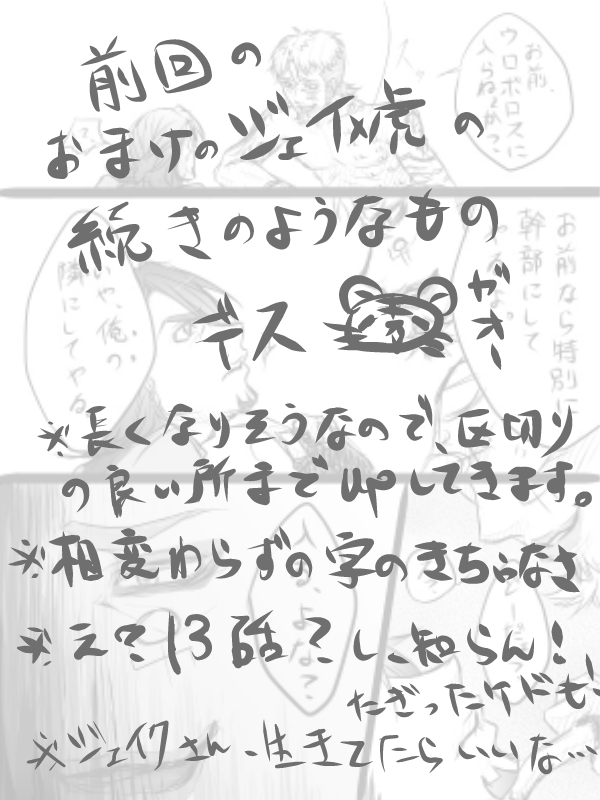 前回の
おまけのジェイ×虎の
続きのようなもの
デス
ガオー
※長くなりそうなので、区切り
の良い所までupしてきます。
※相変わらずの字のきちゃなさ
※え?13話?し、知らん!
たぎったけども!
※ジェイクさん、生きてたらいいな…
お前、
ウロボロスに
入らねぇか?
お前なら特別に
幹部にして
やるよ。
いや、俺の
隣にしてやる
入る、よな?